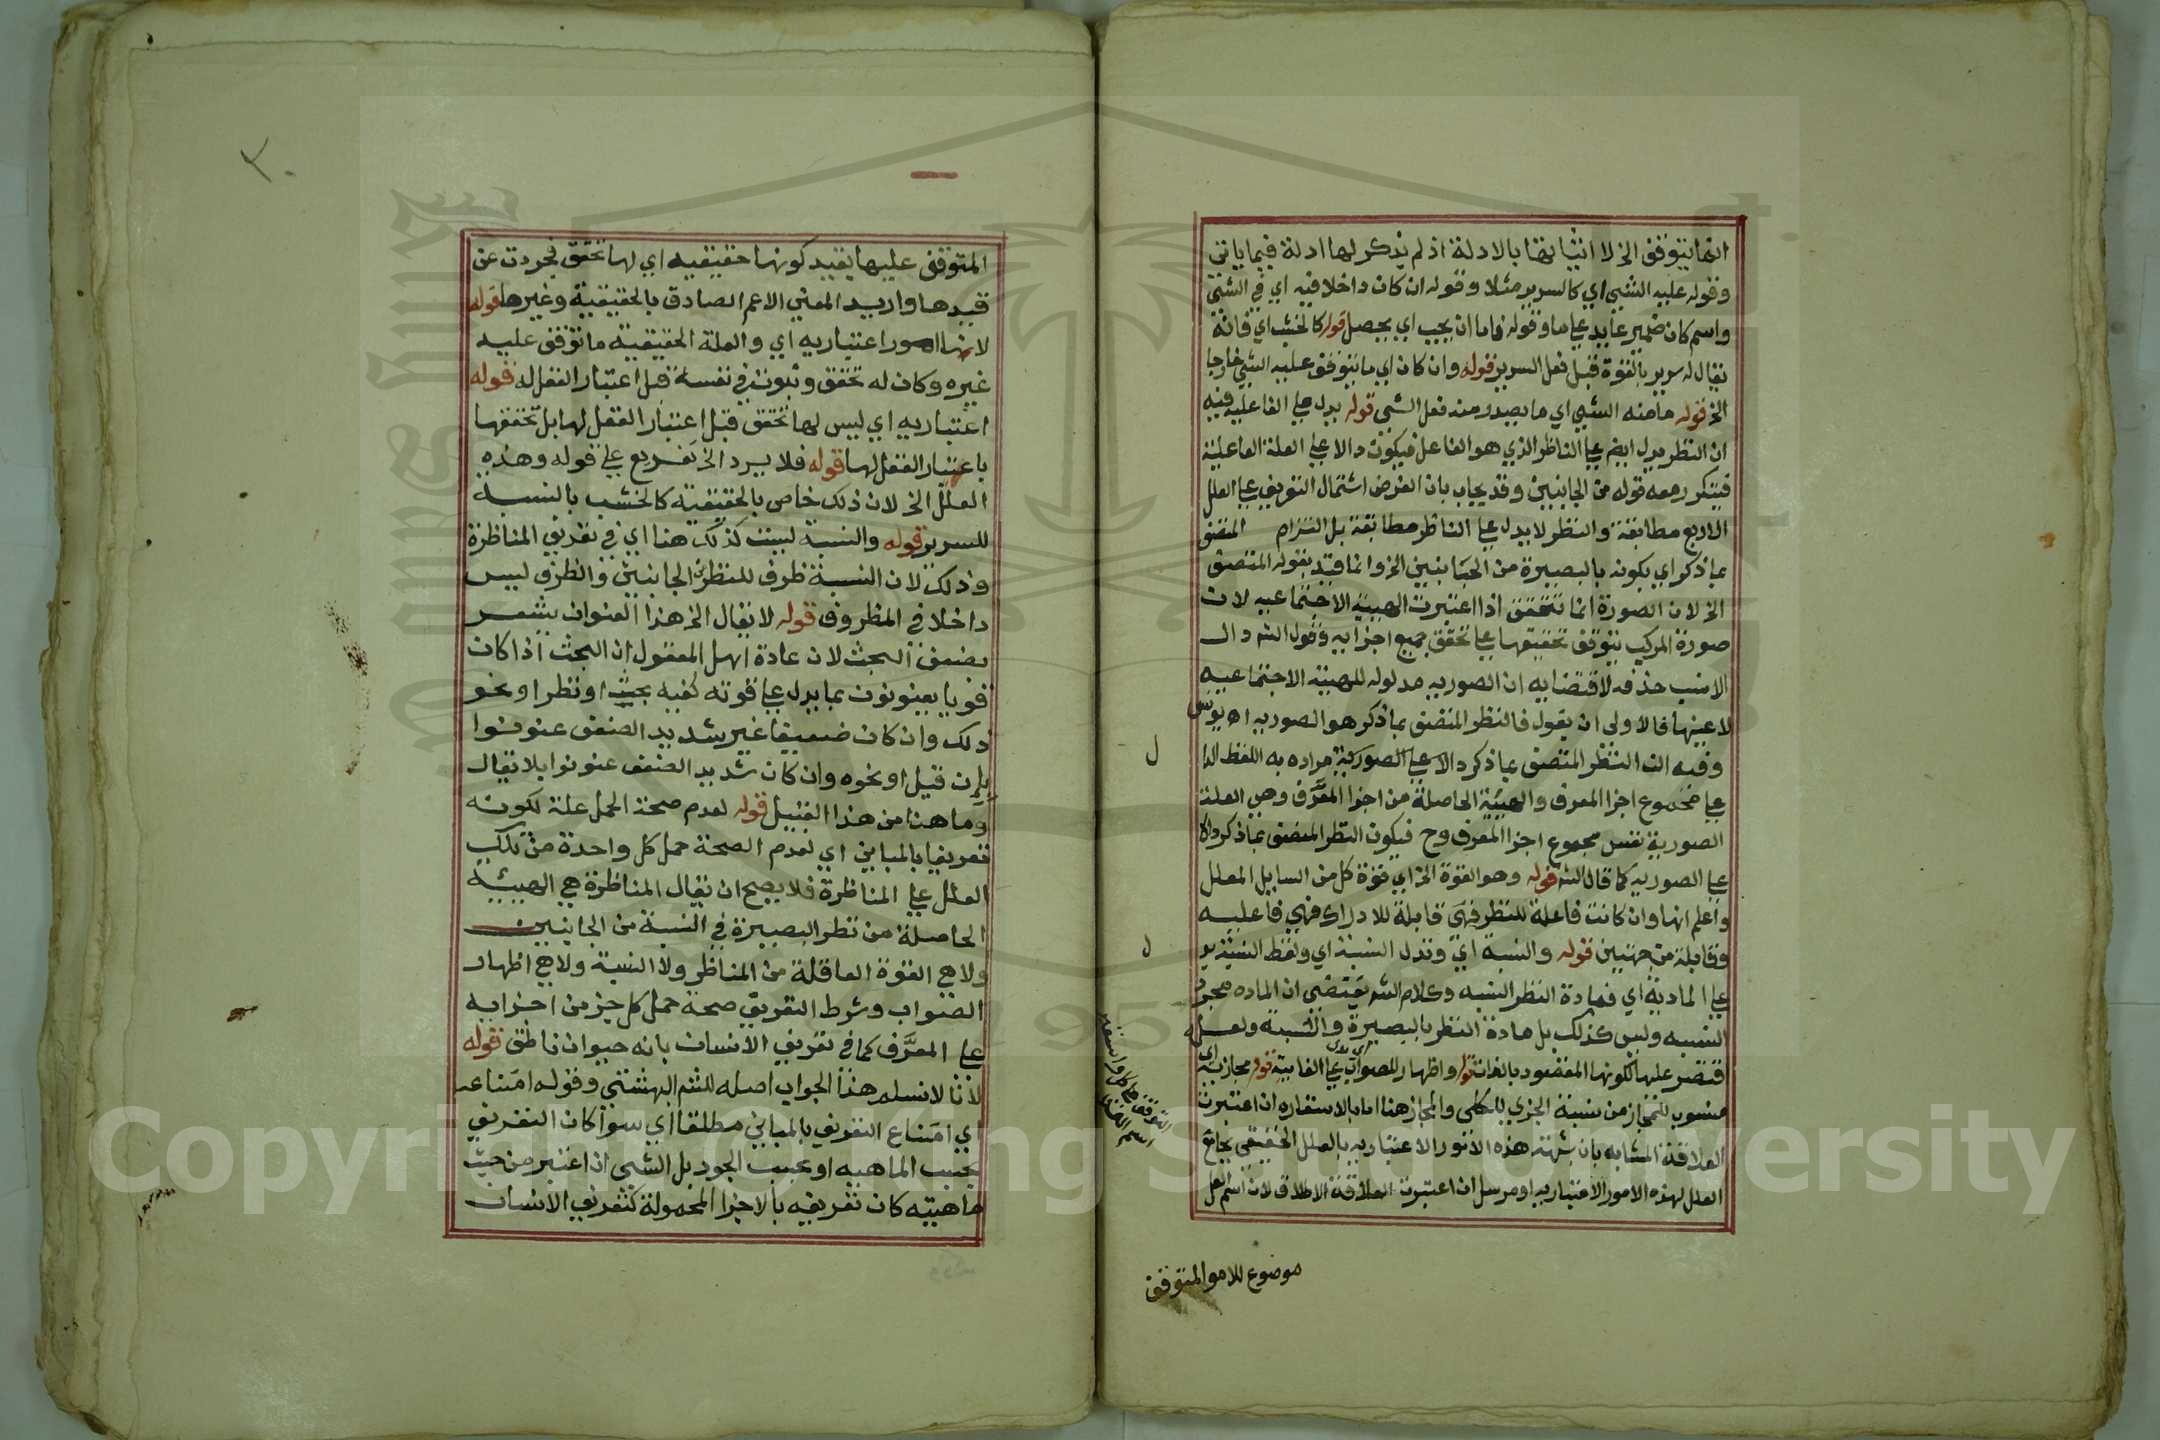 انما يتوقف الخ لا اثباتها بالادلة اذ لم يذكر لها ادلة فيما ياتى
وقوله عليه الشيى اي كالسرير مثلا وقوله ان كان داخلا فيه اي في الشيئ
واسم كان ضمير عايد علي ما وقوله فاما ان يجب اي يحصل قوله كالخشب اي فانه
يقال له سرير بالقوة قبل فعل السرير قوله وان كان اي ما يتوقف عليه الشيى خارجا
الخ قوله ما منه الشيى اي ما يصدر منه فعل الشيى قوله يدل علي الفاعلية فيه
ان النظر يدل ايضم علي الناظر الذي هو الفاعل فيكون دالا علي العلة الفاعلية
فيتكرر معه قوله من الجانبين وقد يجاب بان الغرض اشتمال التعريف علي العلل
الاربع مطابقة والنظر لا يدل علي الناظر مطابقة بل التزام المتصف
بما ذكر اي بكونه بالبصيرة من الجانبين الخ وانما قيد بقوله المتصف
الخ لان الصورة انما تتحقق اذا اعتبرت الهيئة الاجتماعيه لان
صورة المركب يتوقف تحقيقها علي تحقق جميع اجزايه وقول الشم دال
الانسب حذفه لاقتضايه ان الصوريه مدلوله للهيئة الاجتماعييه
لا عينها فالاولى ان يقول فالنظر المتصف بما ذكر هو الصوريه اه يونس
وفيه ان النظر المتصف بما ذكر دال علي الصورية مراده به اللفظ الدال
علي مجموع اجزا المعرف والهيئة الحاصلة من اجزا المعَرَّف وهي العلة
الصورية نفس مجموع اجزا المعرف وح فيكون النظر المتصف بما ذكر دالا
علي الصوريه كما قال الشم قوله وهو القوة الخ اي قوة كل من السايل المعلل
واعلم انها وان كانت فاعلة للنظر فهي قابلة للادراك فهي فاعليه
وقابلة من جهتين قوله والنسبة اي وتدل النسبة اي ولفظ النسبة يدل
علي المادية اي فمادة النظر النسبه وكلام الشم يقتضى ان الماده مجرد
النسبه وليس كذلك بل مادة النظر بالبصيرة والنسبة ولعله
اقتصر عليها لكونها المقصود بالذات قوله واظهار للصواب علي الغايية قوله مجازية
منسوب للمجاز من نسبة الجزي للكلي والمجاز هنا اما بالاستعاره ان اعتبرت
العلاقة المشابه بان شبهت هذه الامور الاعتباريه بالعلل الحقيقى بجامع
العلل لهذه الامور الاعتباريه او مرسل ان اعتبرت العلاقة الاطلاق لان اسم العلل
موضوع للامو المتوقف
المتوقف عليها بقيد كونها حقيقيه اي لها تحقق فجردت عن
قيدها واريد المعنى الاعم الصادق بالحقيقية وغيرها قوله
لانها امورا اعتباريه اي والعلة الحقيقية ما توقف عليه
غيره وكان له تحقق وثبوت في نفسه قبل اعتبار العقل له قوله
اعتباريه اي ليس لها تحقق قبل اعتبار العقل لها بل تحققها
باعتبار العقل لها قوله فلا يرد الخ تفريع علي قوله وهذه
العلل الخ لان ذلك خاص بالحقيقية كالخشب بالنسبة
للسرير قوله والنسبة ليست كذلك هنا اي في تعريف المناظرة
وذلك لان النسبة ظرف للنظر من الجانبين والظرف ليس
داخلا في المظروف قوله لا يقال الخ هذا العنوان يشعر
بضعف البحث لان عادة اهل المعقول ان البحث اذا كان
قويا يعنونون بما يدل علي قوته كفيه بحث او نظر او نحو
ذلك وان كان ضعيفا غير شديد الضعف عنونوا
بان قيل او نحوه وان كان شديد الضعف عنونوا بلا يقال
وما هنا من هذا القبيل قوله لعدم صحة الحمل علة لكونه
تعريفا بالمباين اي لعدم الصحة حمل كل واحدة من تلك
العلل علي المناظرة فلا يصح ان يقال المناظرة هي الهيئية
الحاصلة من نظر البصيرة في النسبة من الجانبين
ولا هي القوة العاقلة من المناظر ولا النسبة ولا هي اظهار
الصواب وشرط التعريف صحة حمل كل جز من اجزايه
علي المعرَّف كما في تعريف الانسان بانه حيوان ناطق قوله
لانا لا نسلم هذا الجواب اصله للشم البهشتي وقوله امتناع
اي امتناع التعريف بالمباين مطلقا اي سوا كان التعريف
بحسب الماهيه او بحسب الوجود بل الشى اذا اعتبر من حيث
ماهيته كان تعريفه بالاجزا المحمولة كتعريف الانسان
Copyright © King Saud University